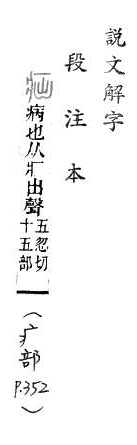 說文解字
段注本
病也从疒出聲
五忽切
十五部
(疒部
P.352)